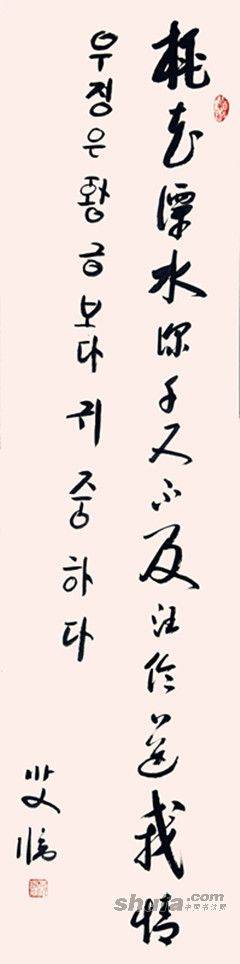 桃花潭水深千尺不及汪伦送我情
우정은 황금보다 귀중하다
shufa.com